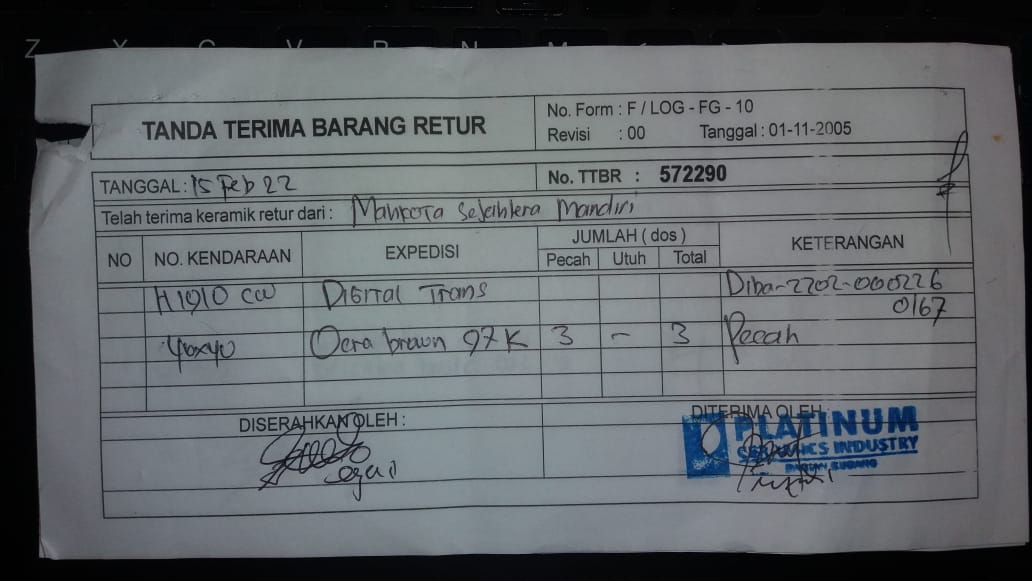 Z X C V B N M
TANDA TERIMA BARANG RETUR
No. Form : F / LOG - FG - 10
Revisi : 00 Tanggal : 01-11-2005
TANGGAL : 15 Feb 22
No. TTBR : 572290
Telah terima keramik retur dari : Mahkota Sejahtera Mandiri
NO NO. KENDARAAN EXPEDISI JUMLAH ( dos ) KETERANGAN
Pecah Utuh Total
H 1910 CW Digital Trans Diba-2202-000226
0167
40x40 Ocra brown 97 K 3 - 3 Pecah
DISERAHKAN OLEH : DITERIMA OLEH :
PLATINUM
CERAMICS INDUSTRY
BAGIAN GUDANG